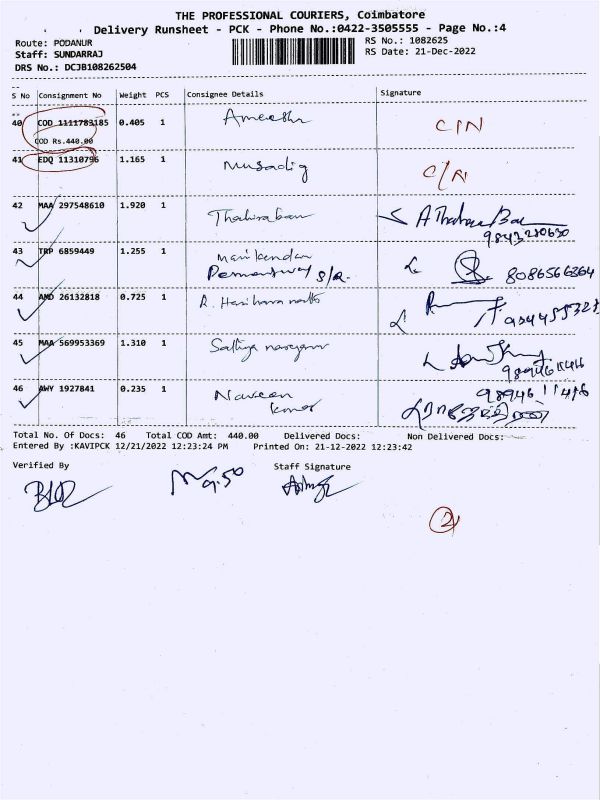 THE PROFESSIONAL COURIERS, Coimbatore
Delivery Runsheet - PCK - Phone No.:0422-3505555 - Page No.:4
Route: PODANUR
RS No.: 1082625
Staff: SUNDARRAJ
RS Date: 21-Dec-2022
DRS No.: DCJB108262504
S No Consignment No Weight PCS Consignee Details Signature
40 COD 1111783185 0.405 1 Ameesha C/N
COD Rs.440.00
41 EDQ 11310796 1.165 1 Musadiq C/N
42 MAA 297548610 1.920 1 Thahiraban A Thahira Banu
9843280630
43 TRP 6859449 1.255 1 Manikandan
S/R. 8086566364
44 AMD 26132818 0.725 1 R. Harihara
45 MAA 569953369 1.310 1 Sathya narayanan
46 AWY 1927841 0.235 1 Naveen
kumar
Total No. Of Docs: 46 Total COD Amt: 440.00 Delivered Docs: Non Delivered Docs:
Entered By :KAVIPCK 12/21/2022 12:23:24 PM Printed On: 21-12-2022 12:23:42
Verified By Staff Signature
9.50
2